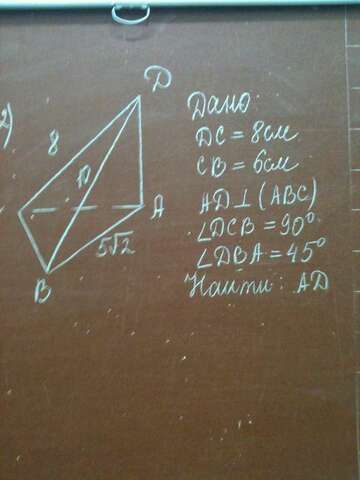 2)
D
8
10
A
5√2
B
Дано:
DC = 8см
CB = 6см
AD ⊥ (ABC)
∠DCB = 90°
∠DBA = 45°
Найти: AD